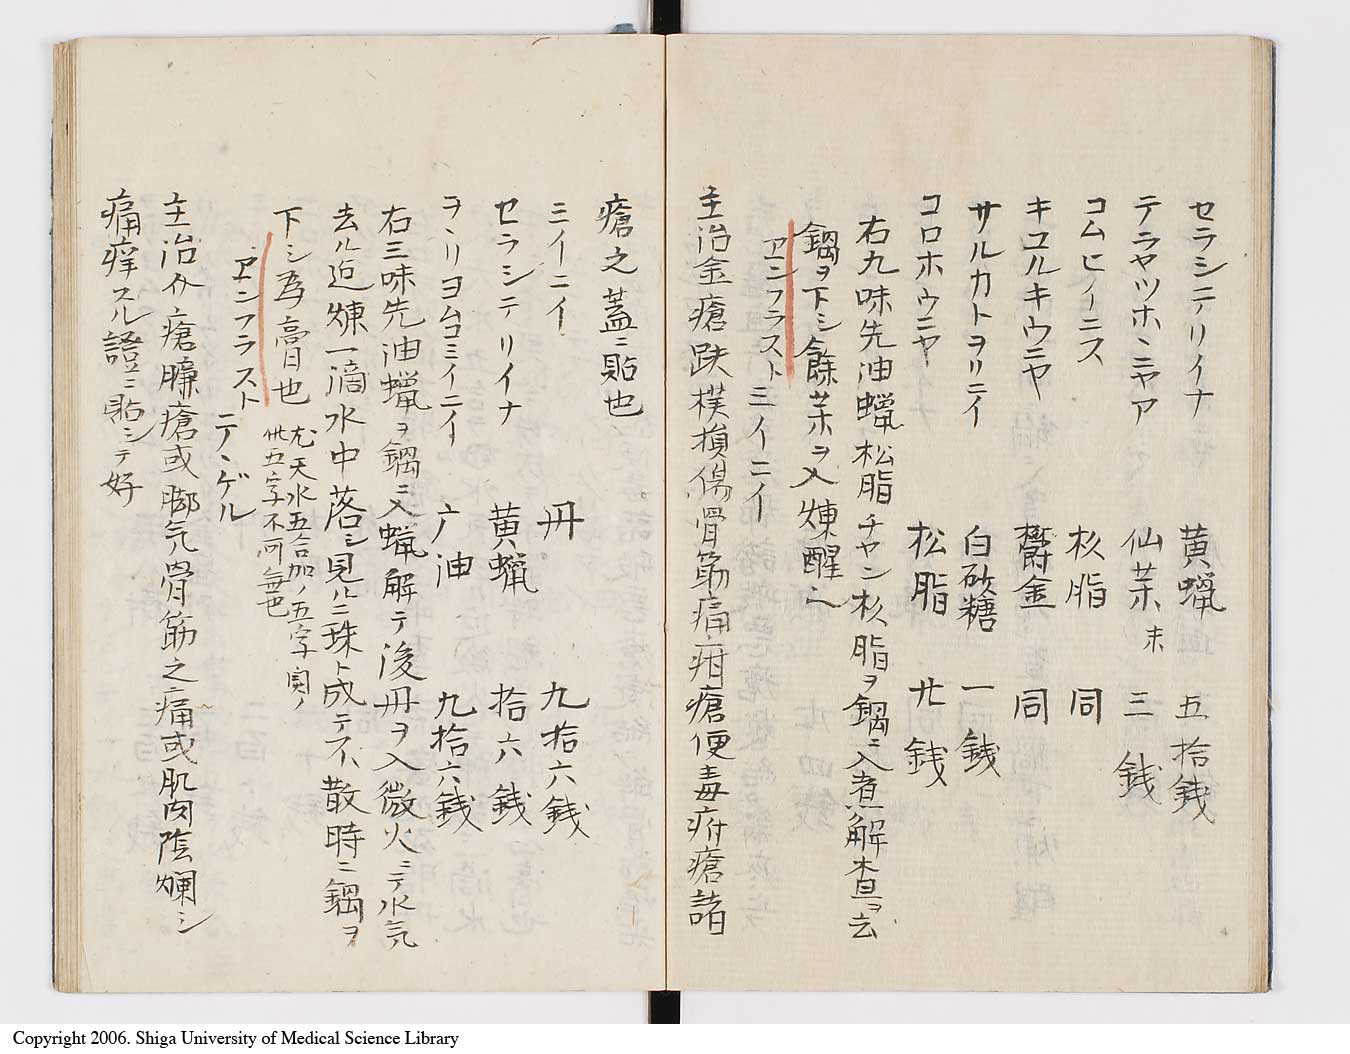 セラシテリイナ 黄蝋 五拾銭
テラヤツホヽニヤア 仙茅 末 三銭
コムヒノーニス 杉脂 同
キコルキウニヤ 欝金 同
サルカトヲリニイ 白砂糖 一銭
コロホウニヤ 松脂 廿銭
右九味先油蝋松脂チヤン杉脂ヲ鍋ニ入煮解査ヲ去
鍋ヲ下シ餘茱ヲ入煉醒ヘシ
ヱンフラスト ミイニイ
主治金瘡跌撲損傷骨筋痛疳瘡便毒疔瘡諸
瘡之蓋ニ貼也
ミイニイ 丹 九拾六銭
セラシテリイナ 黄蝋 拾六銭
ヲヽリヨムコミイニイ 亠油 九拾六銭
右三味先油蝋ヲ鍋ニ入蝋解テ後丹ヲ入微火ニテ水気
去ル迠煉一滴水中落シ見ルニ珠ト成テ不散時ニ鍋ヲ
下シ為膏也 尤天水五合加ノ五字
此五字不可無也
ヱンフラスト テヽンゲル
主治 瘡臁瘡或脚気骨筋之痛或肌肉陰爛シ
痛痒スル證ニ貼シテ好
Copyright 2006. Shiga University of Medical Science Library